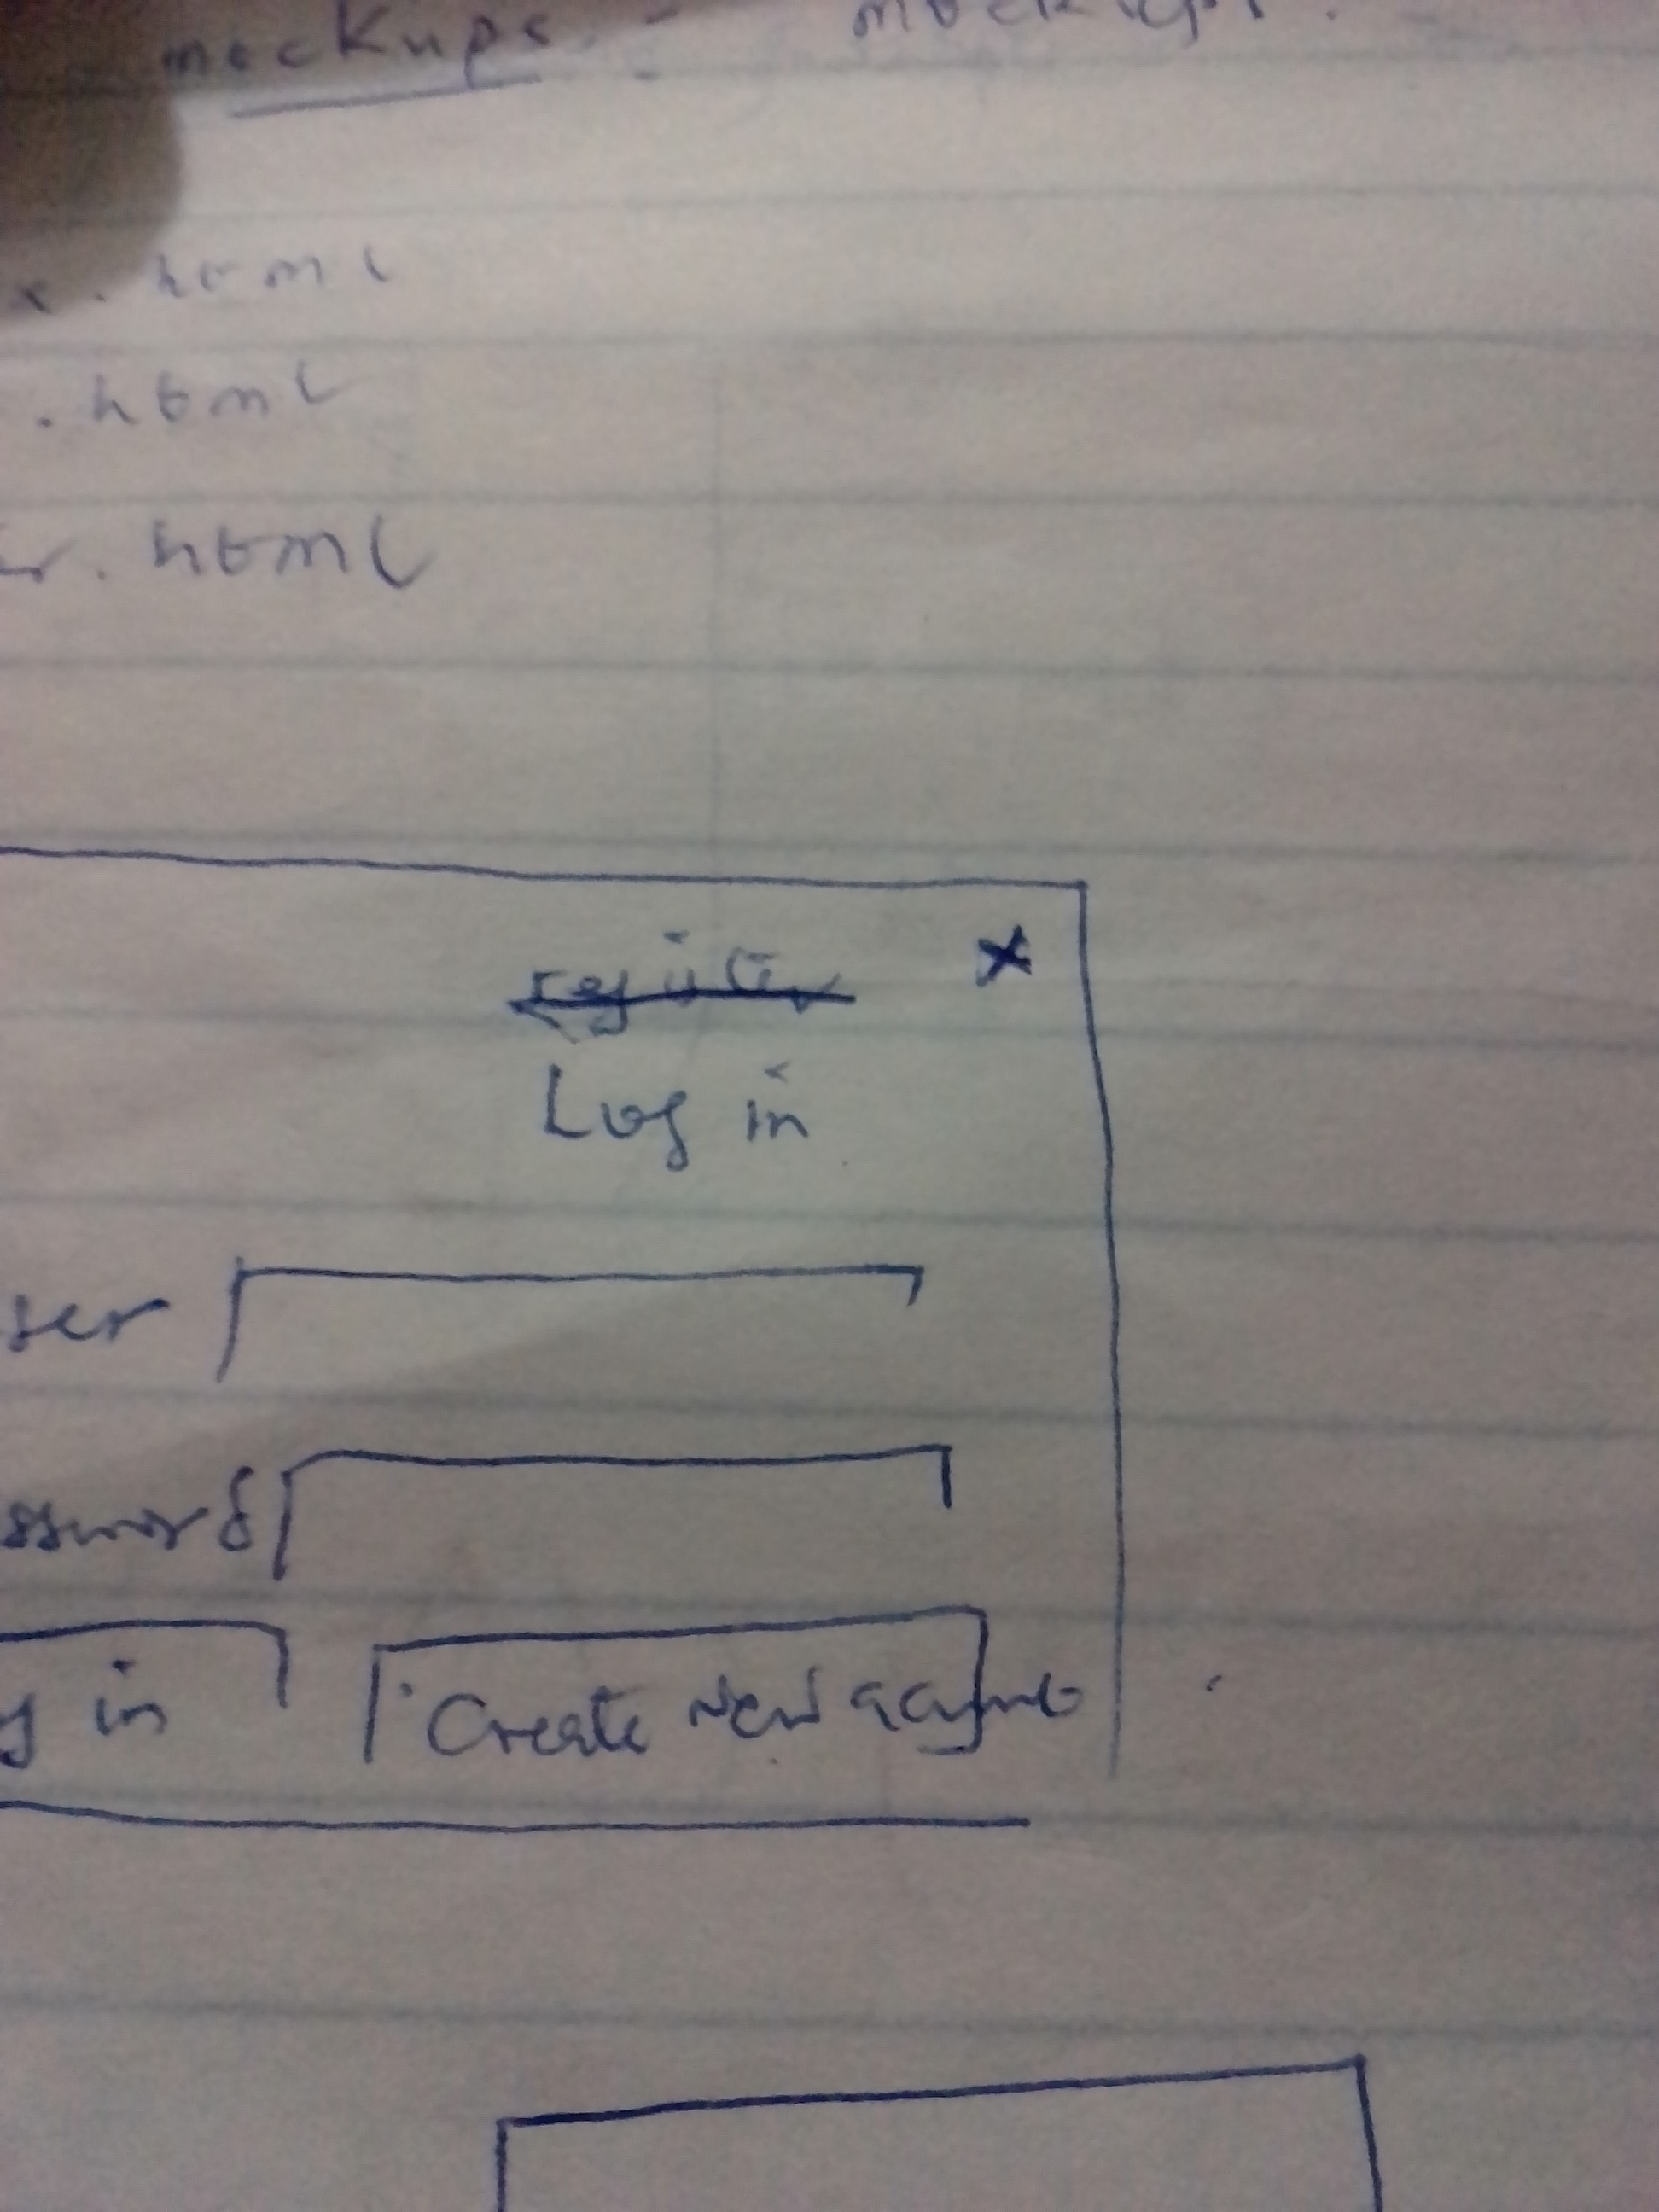 mockups. - mockups.
x.html
.html
er.html
register x
Log in
ser
ssword
g in Create new